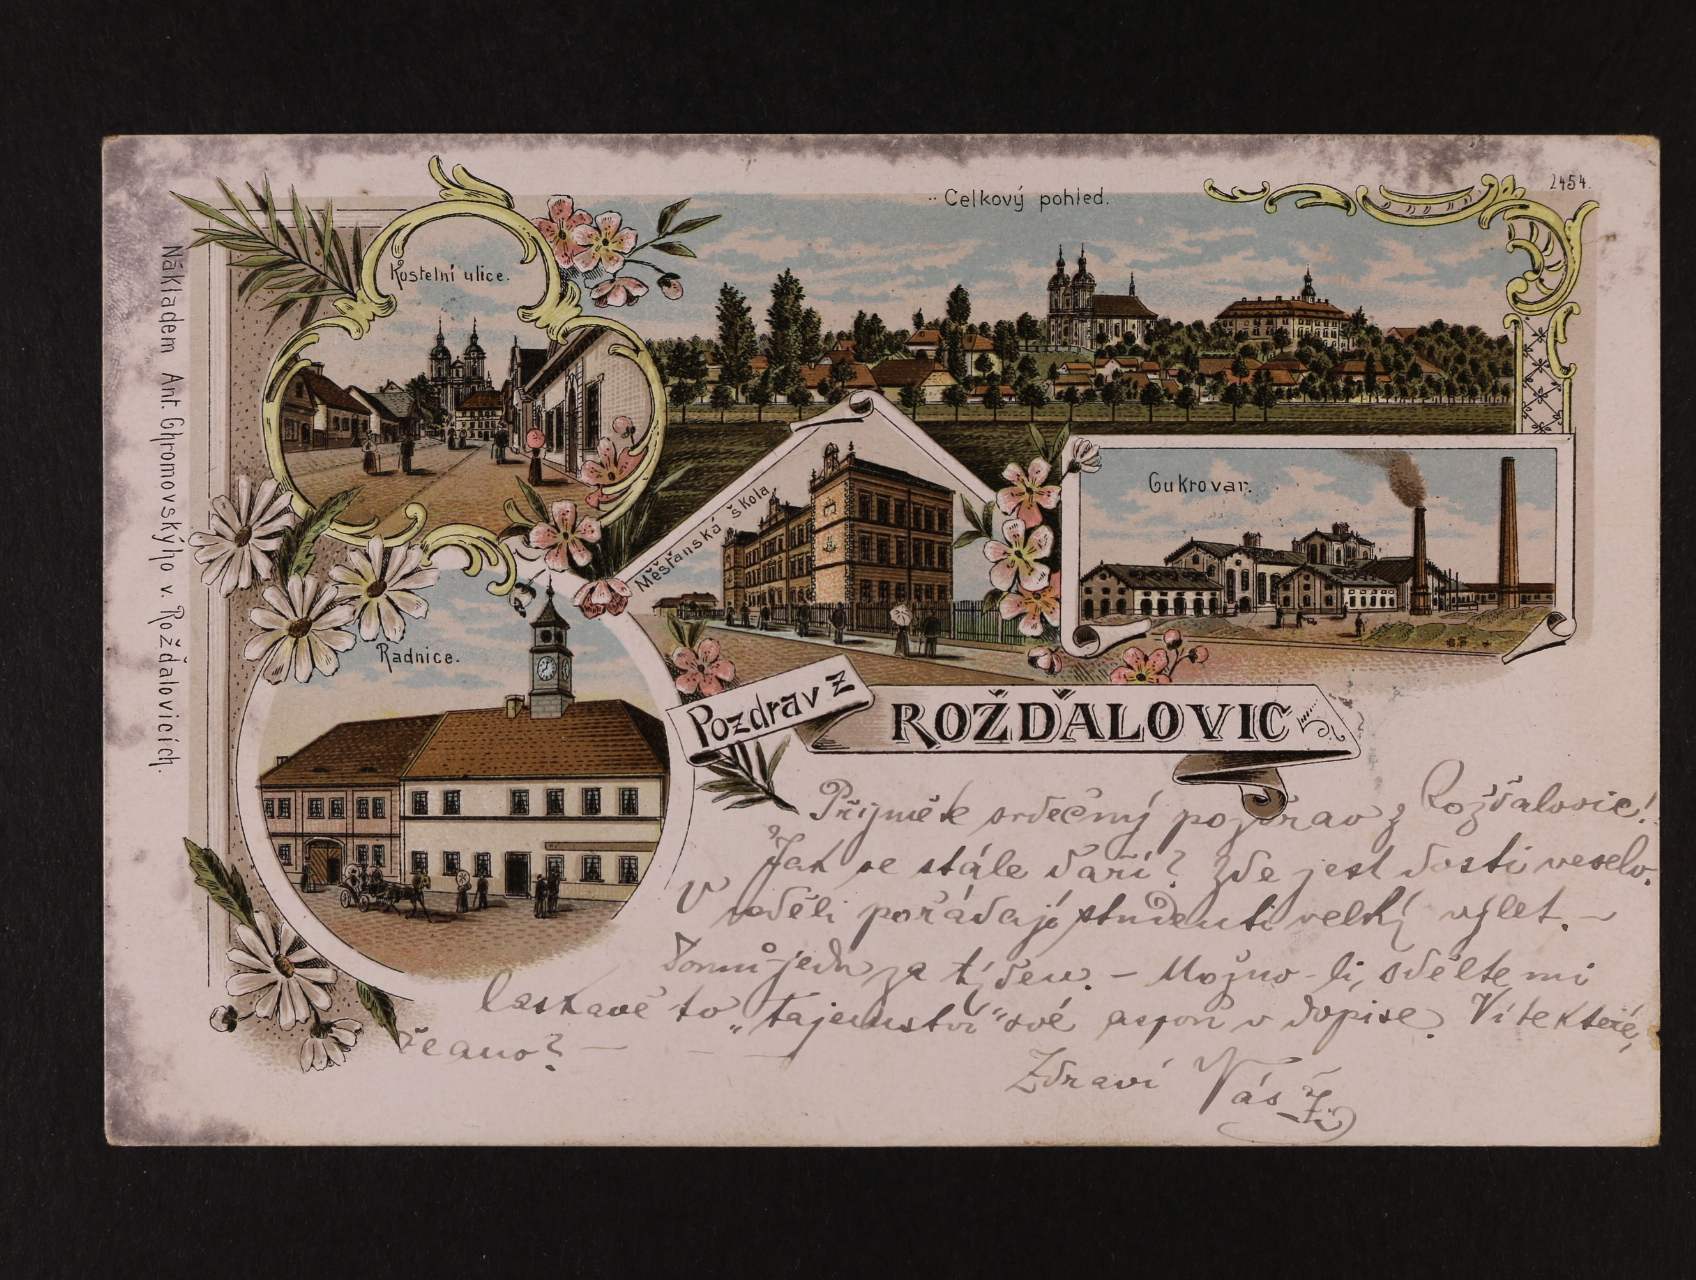 Celkový pohled.
2454.
Kostelní ulice.
Nákladem Ant. Chromovského v Rožďalovicích.
Měšťanská škola.
Cukrovar.
Radnice.
Pozdrav z
ROŽĎALOVIC
Přijměte srdečný pozdrav z Rožďalovic!
Jak se stále daří? Zde jest dosti veselo.
V neděli pořádají studenti velký výlet. –
za týden. – Možno-li, sdělte mi
laskavě to „tajemství“ své aspoň v dopise. Víte které,
že ano? – – –
Zdraví Váš Ž.